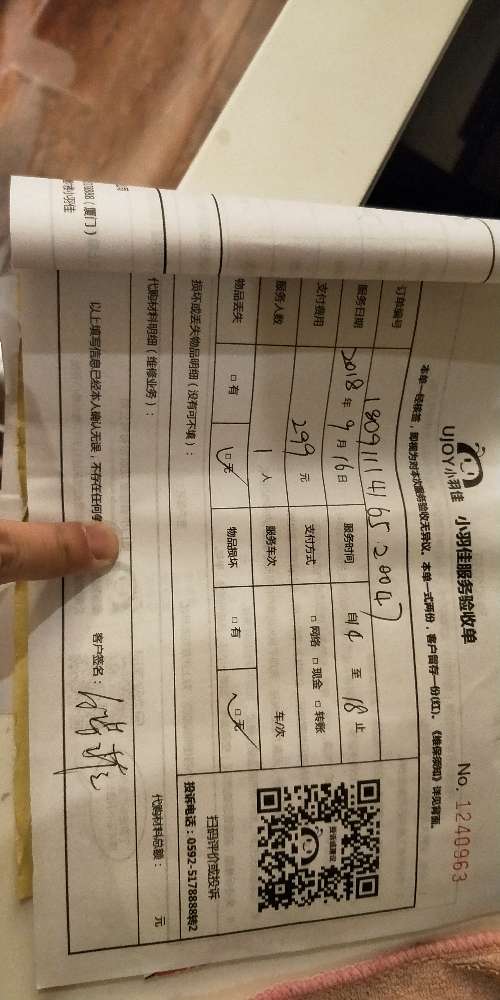 UJOY小羽佳 小羽佳服务验收单 No. 1240963
本单一经核签，即视为对本次服务验收无异议。本单一式两份，客户留存一份(红)。《维保须知》详见背面。
订单编号 1809111416520047
服务日期 2018 年 9 月 16 日 服务时间 自 14 至 18 止
支付费用 299 元 支付方式 □ 网络 □ 现金 □ 转账
服务人数 1 人 服务车次 车/次
物品丢失 □ 有 □ 无 物品损坏 □ 有 □ 无
扫码评价或投诉
投诉电话：0592-5178888转2
损坏或丢失物品明细（没有可不填）：
代购材料明细（维修业务）： 代购材料总额： 元
以上填写信息已经本人确认无误，不存在任何
客户签名：
（厦门）
小羽佳